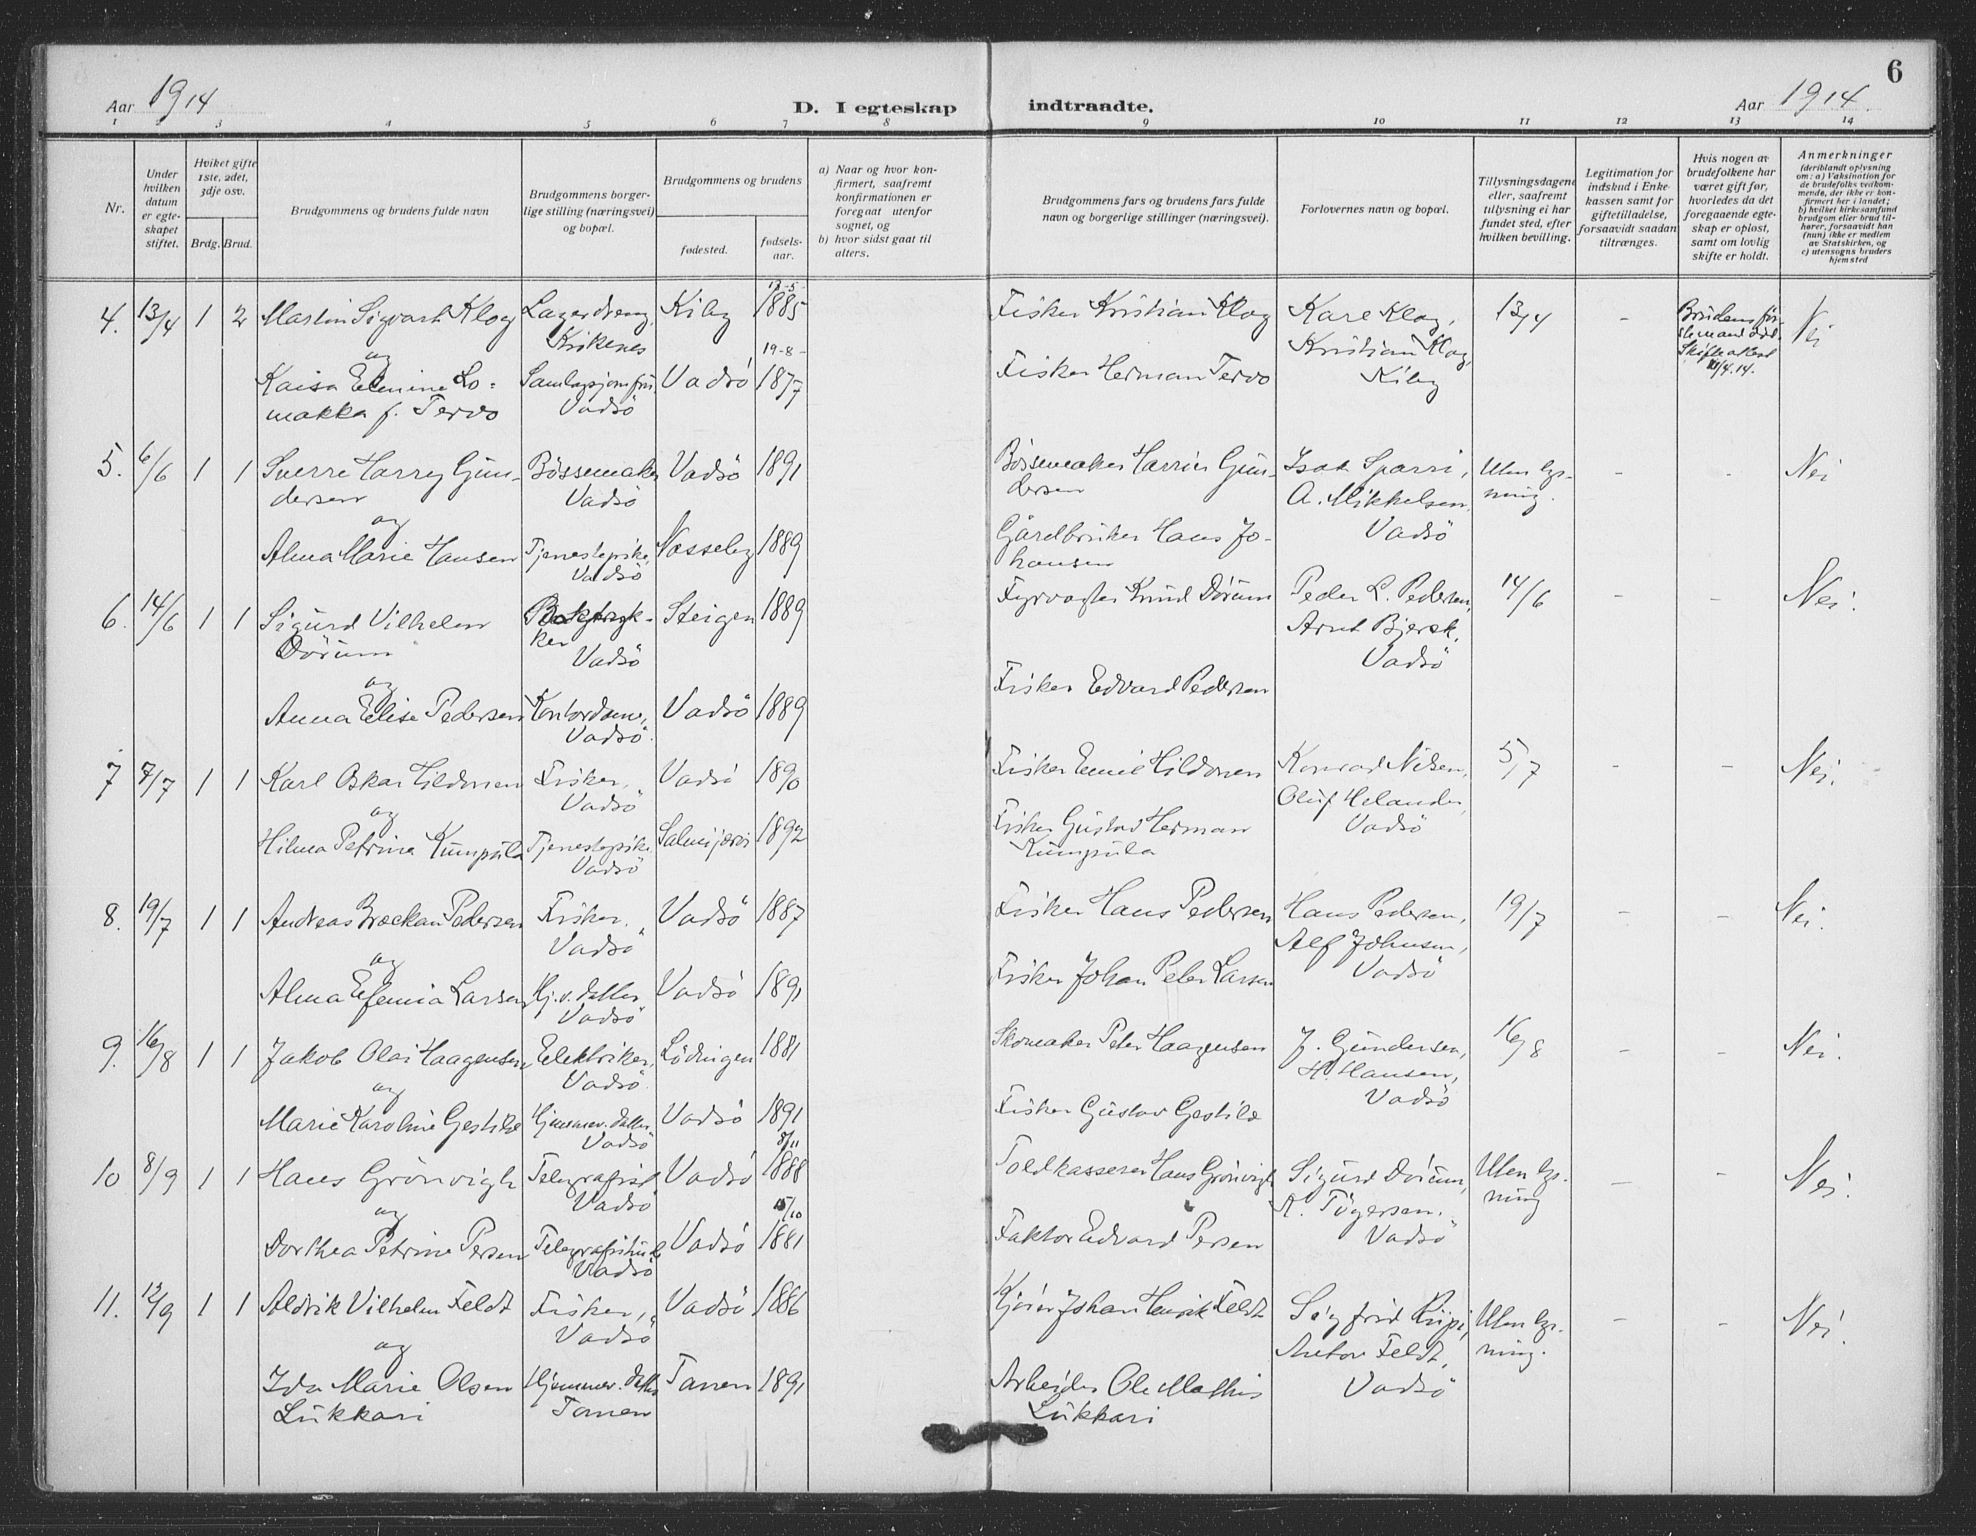 Aar 1914
D. I egteskap indtraadte.
Aar 1914.
6
1 2 3 4 5 6 7 8 9 10 11 12 13 14
Nr.
Under hvilken datum er egteskapet stiftet.
Hvilket gifte 1ste, 2det, 3dje osv.
Brdg. Brud.
Brudgommens og brudens fulde navn
Brudgommens borgerlige stilling (næringsvei) og bopæl.
Brudgommens og brudens
fødested.
fødselsaar.
a) Naar og hvor konfirmert, saafremt konfirmationen er foregaat utenfor sognet, og
b) hvor sidst gaat til alters.
Brudgommens fars og brudens fars fulde navn og borgerlige stillinger (næringsvei).
Forlovernes navn og bopæl.
Tillysningsdagene eller, saafremt tillysning ei har fundet sted, efter hvilken bevilling.
Legitimation for indskud i Enkekassen samt for giftetilladelse, forsaavidt saadan tiltrænges.
Hvis nogen av brudefolkene har været gift før, hvorledes da det foregaaende egteskap er opløst, samt om lovlig skifte er holdt.
Anmerkninger
(deriblandt oplysning om: a) Vaksination for de brudefolks vedkommende, der ikke er konfirmert her i landet; b) hvilket kirkesamfund brudgom eller brud tilhører, forsaavidt han (hun) ikke er medlem av Statskirken, og c) utensogns bruders hjemsted
4. 13/4 1 2 Martin Sigvart Klog Lagerdreng, Kiby 1885 Fisker Kristian Klog Karl Klog, 13/4 - Brudens før-
og Kirkenes 19-8- Kristian Klog, Nei
Kaisa Elmine Lo= Vadsö 1877 Fisker Herman Tervo Kiby
makka f. Tervo Vadsö
5. 6/6 1 1 Sverre Harry Gun- Bössemaker Vadsö 1891 Bössemaker Gun- Isak Sparri, Uten lys- - - Nei
dersen Vadsö dersen A. Mikkelsen, ning.
og Gårdbruker Hans Jo- Vadsö
Alma Marie Hansen Tjenestepike, Nesseby 1889 hansen
Vadsö
6. 14/6 1 1 Sigurd Vilhelm Boktryk- Steigen 1889 Fyrvogter Knud Dörum Peder L. Pedersen, 14/6 - - Nei.
Dörum ker Arnt Bjersk,
og Vadsö Vadsö
Fisker Edvard Pedersen
Anna Elise Pedersen Kontordame, Vadsö 1889
Vadsö.
7 7/7 1 1 Karl Oskar Hildonen Fisker, Vadsö 1890 Fisker Emil Hildonen Konrad Nilsen, 5/7 - - Nei.
og Vadsö Oluf Helander,
Hilma Petrine Kumpula Tjenestepike Salmijärvi 1892 Fisker Gustav Herman Vadsö
Vadsö Kumpula
8. 19/7 1 1 Andreas Brackan Pedersen Fisker, Vadsö 1887 Fisker Hans Pedersen Hans Pedersen, 19/7 - - Nei.
og Vadsö Alf Johnsen,
Alma Efemia Larsen Hj.v. datter Vadsö 1891 Fisker Johan Peter Larsen Vadsö
Vadsö
9. 16/8 1 1 Jakob Olai Haagensen Elektriker, Lödingen 1881 Skomaker Peter Haagensen J. Gundersen, 16/8 - - Nei.
og Vadsö. H. Hansen,
Marie Karoline Gestilæ Hjemmev. datter Vadsö 1891 Fisker Gustav Gestilæ Vadsö
Vadsö 8/11
10 8/9 1 1 Hans Grönvigh Telegrafist Vadsö 1888 Toldkasserer Hans Grönvigh Sigurd Dörum, Uten lys- - - Nei.
og Vadsö 15/10 K. Tögersen. ning
Dorthea Petrine Persen Telegrafistinde Vadsö 1881 Faktor Edvard Persen Vadsö
Vadsö
11. 12/9 1 1 Aldrik Vilhelm Feldt Fisker, Vadsö 1886 Johan Henrik Feldt Sigfrid Riipi, Uten lys- - - Nei.
og Vadsö Anton Feldt, ning.
Ida Marie Olsen Hjemmev. datter Tanen 1891 Arbeider Ole Mathis Vadsö
Lukkari Tanen Lukkari